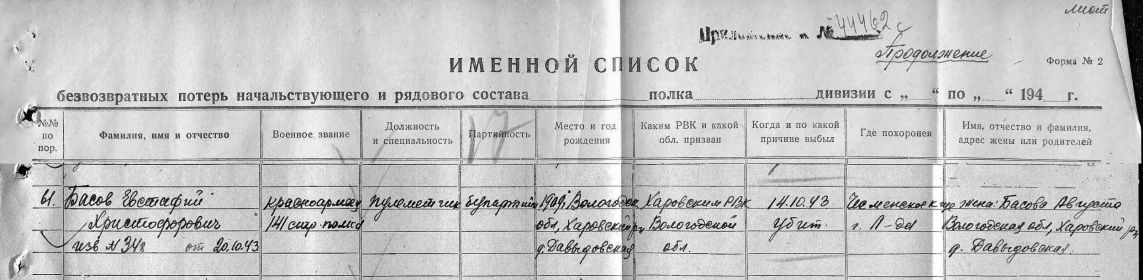 лист
Приложение к № 44462с
Продолжение
ИМЕННОЙ СПИСОК
Форма № 2
безвозвратных потерь начальствующего и рядового состава полка дивизии с „ “ по „ “ 194 г.
№№ по пор.
Фамилия, имя и отчество
Военное звание
Должность и специальность
Партийность
Место и год рождения
Каким РВК и какой обл. призван
Когда и по какой причине выбыл
Где похоронен
Имя, отчество и фамилия, адрес жены или родителей
17
61. Басов Евстафий красноармеец пулеметчик беспартийн 1909г Вологодск. Харовским РВК 14.10.43 жена: Басова Августа
Христофорович 141 стр. полка обл, Харовский р, Вологодской убит. г. Л-да Вологодская обл, Харовский р,
изв N 342 от 20.10.43 д. Давыдовская обл. д. Давыдовская.